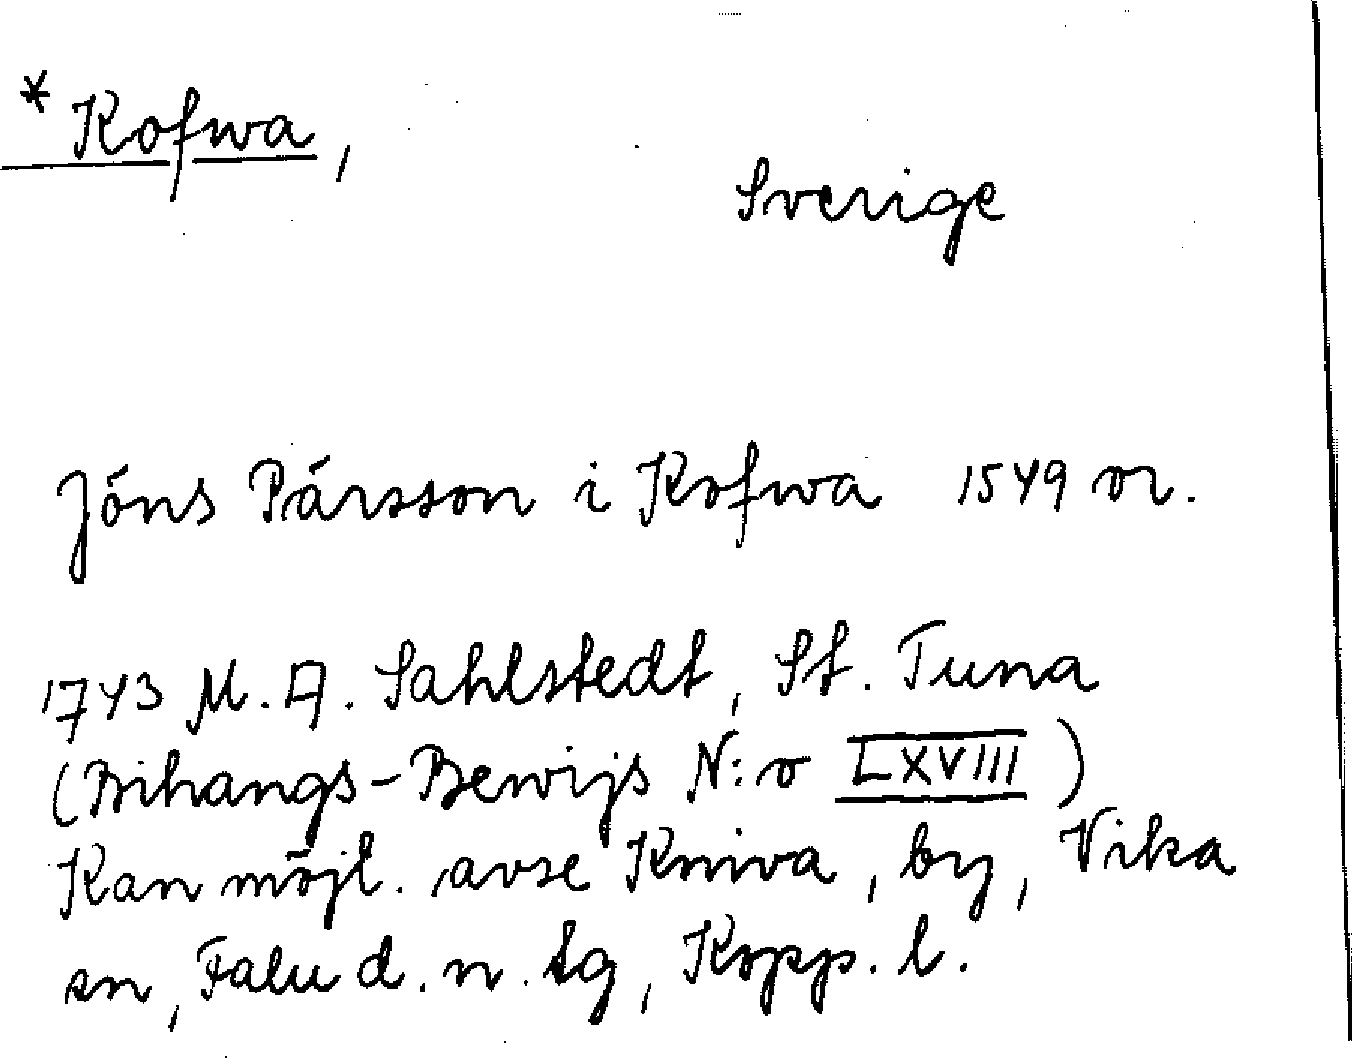 *Kofwa,
Sverige
Jöns Pärsson i Kofwa 1549 or.
1743 M. A. Sahlstedt, St. Tuna
(Bihangs-Bewijs N:o LXVIII)
Kan möjl. avse Kniva, by, Vika
sn, Falu d. n. tg, Kopp. l.